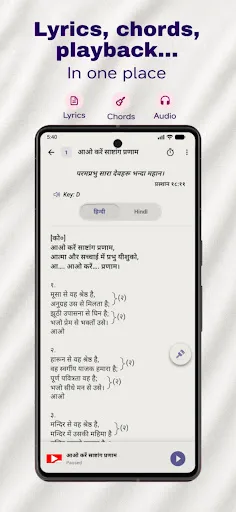 Lyrics, chords,
playback...
In one place
Lyrics
Chords
Audio
5:40
1 आओ करें साष्टांग प्रणाम
परमप्रभु सारा देवहरू भन्दा महान।
प्रस्थान १८:११
Key: D
हिन्दी Hindi
[को॰]
आओ करें साष्टांग प्रणाम,
आत्मा और सच्चाई में प्रभु यीशुको,
आ... आओ करें... प्रणाम।
१.
मूसा से वह श्रेष्ठ है,
अनुग्रह उस से मिलता है; }(२)
झूठी उपासना से फिर है;
भजो प्रेम से भक्तों उसे। }(२)
आओ
२.
हारून से वह श्रेष्ठ है,
वह स्वर्गीय याजक हमारा है; }(२)
पूर्ण पवित्रता वह है;
भजो सीधे मन से उसे। }(२)
आओ
३.
मन्दिर से वह श्रेष्ठ है,
मन्दिर में उसकी महिमा है }(२)
आओ करें साष्टांग प्रणाम
Paused